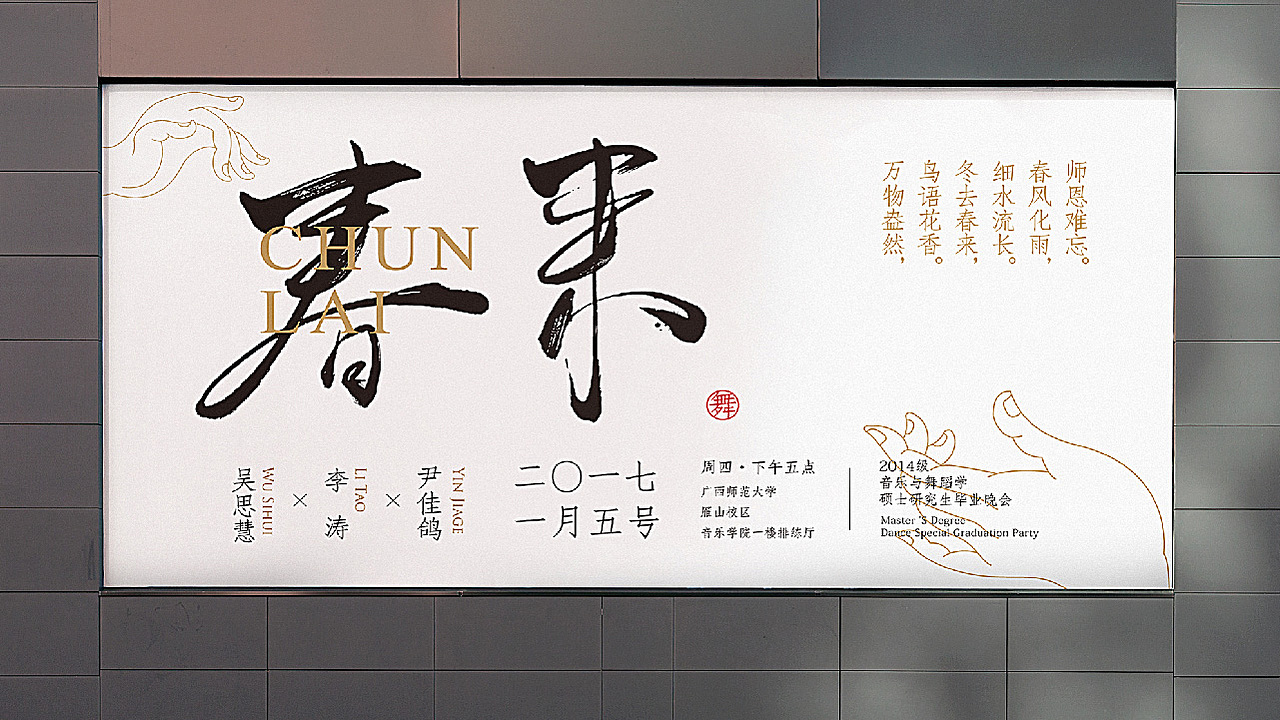 春来
CHUN
LAI
师恩难忘。
春风化雨，
细水流长。
冬去春来，
鸟语花香。
万物盎然，
舞
吴思慧
WU SIHUI
×
李涛
LI TAO
×
尹佳鸽
YIN JIAGE
二〇一七
一月五号
周四·下午五点
广西师范大学
雁山校区
音乐学院一楼排练厅
2014级
音乐与舞蹈学
硕士研究生毕业晚会
Master 'S Degree
Dance Special Graduation Party